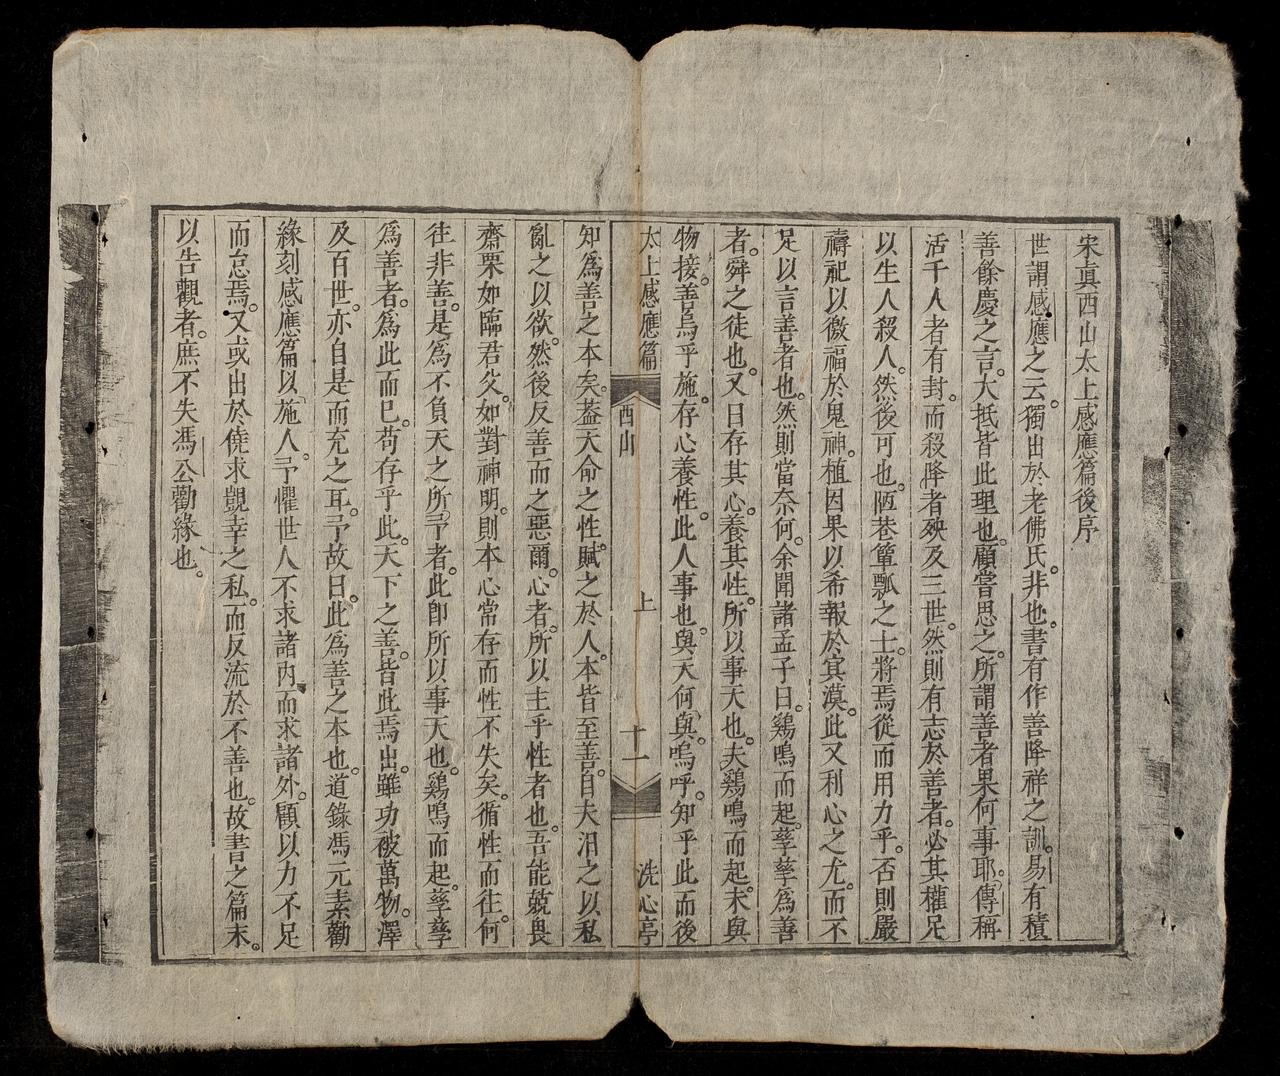 宋眞西山太上感應篇後序
世謂感應之云。獨出於老佛氏。非也。書有作善降祥之訓。易有積
善餘慶之言。大抵皆此理也。顧嘗思之。所謂善者果何事耶。傳稱
活千人者有封。而殺降者殃及三世。然則有志於善者。必其權足
以生人殺人。然後可也。陋巷簞瓢之士。將焉從而用力乎。否則嚴
禱祀以徼福於鬼神。植因果以希報於冥漠。此又利心之尤。而不
足以言善者也。然則當奈何。余聞諸孟子曰。鷄鳴而起。孳孳爲善
者。舜之徒也。又曰存其心。養其性。所以事天也。夫鷄鳴而起。未與
物接。善烏乎施。存心養性。此人事也。與天何與。嗚呼。知乎此而後
太上感應篇 西山 上 十一 洗心亭
知爲善之本矣。葢天命之性。賦之於人。本皆至善。自夫汨之以私
亂之以欲。然後反善而之惡爾。心者。所以主乎性者也。吾能兢畏
齋栗如臨君父。如對神明。則本心常存而性不失矣。循性而往。何
往非善。是爲不負天之所予者。此卽所以事天也。鷄鳴而起。孳孳
爲善者。爲此而已。苟存乎此。天下之善。皆此焉出。雖功被萬物。澤
及百世。亦自是而充之耳。予故曰。此爲善之本也。道錄馮元素勸
緣刻感應篇以施人。予懼世人不求諸內而求諸外。顧以力不足
而怠焉。又或出於僥求覬幸之私。而反流於不善也。故書之篇末。
以告觀者。庶不失馮公勸緣也。